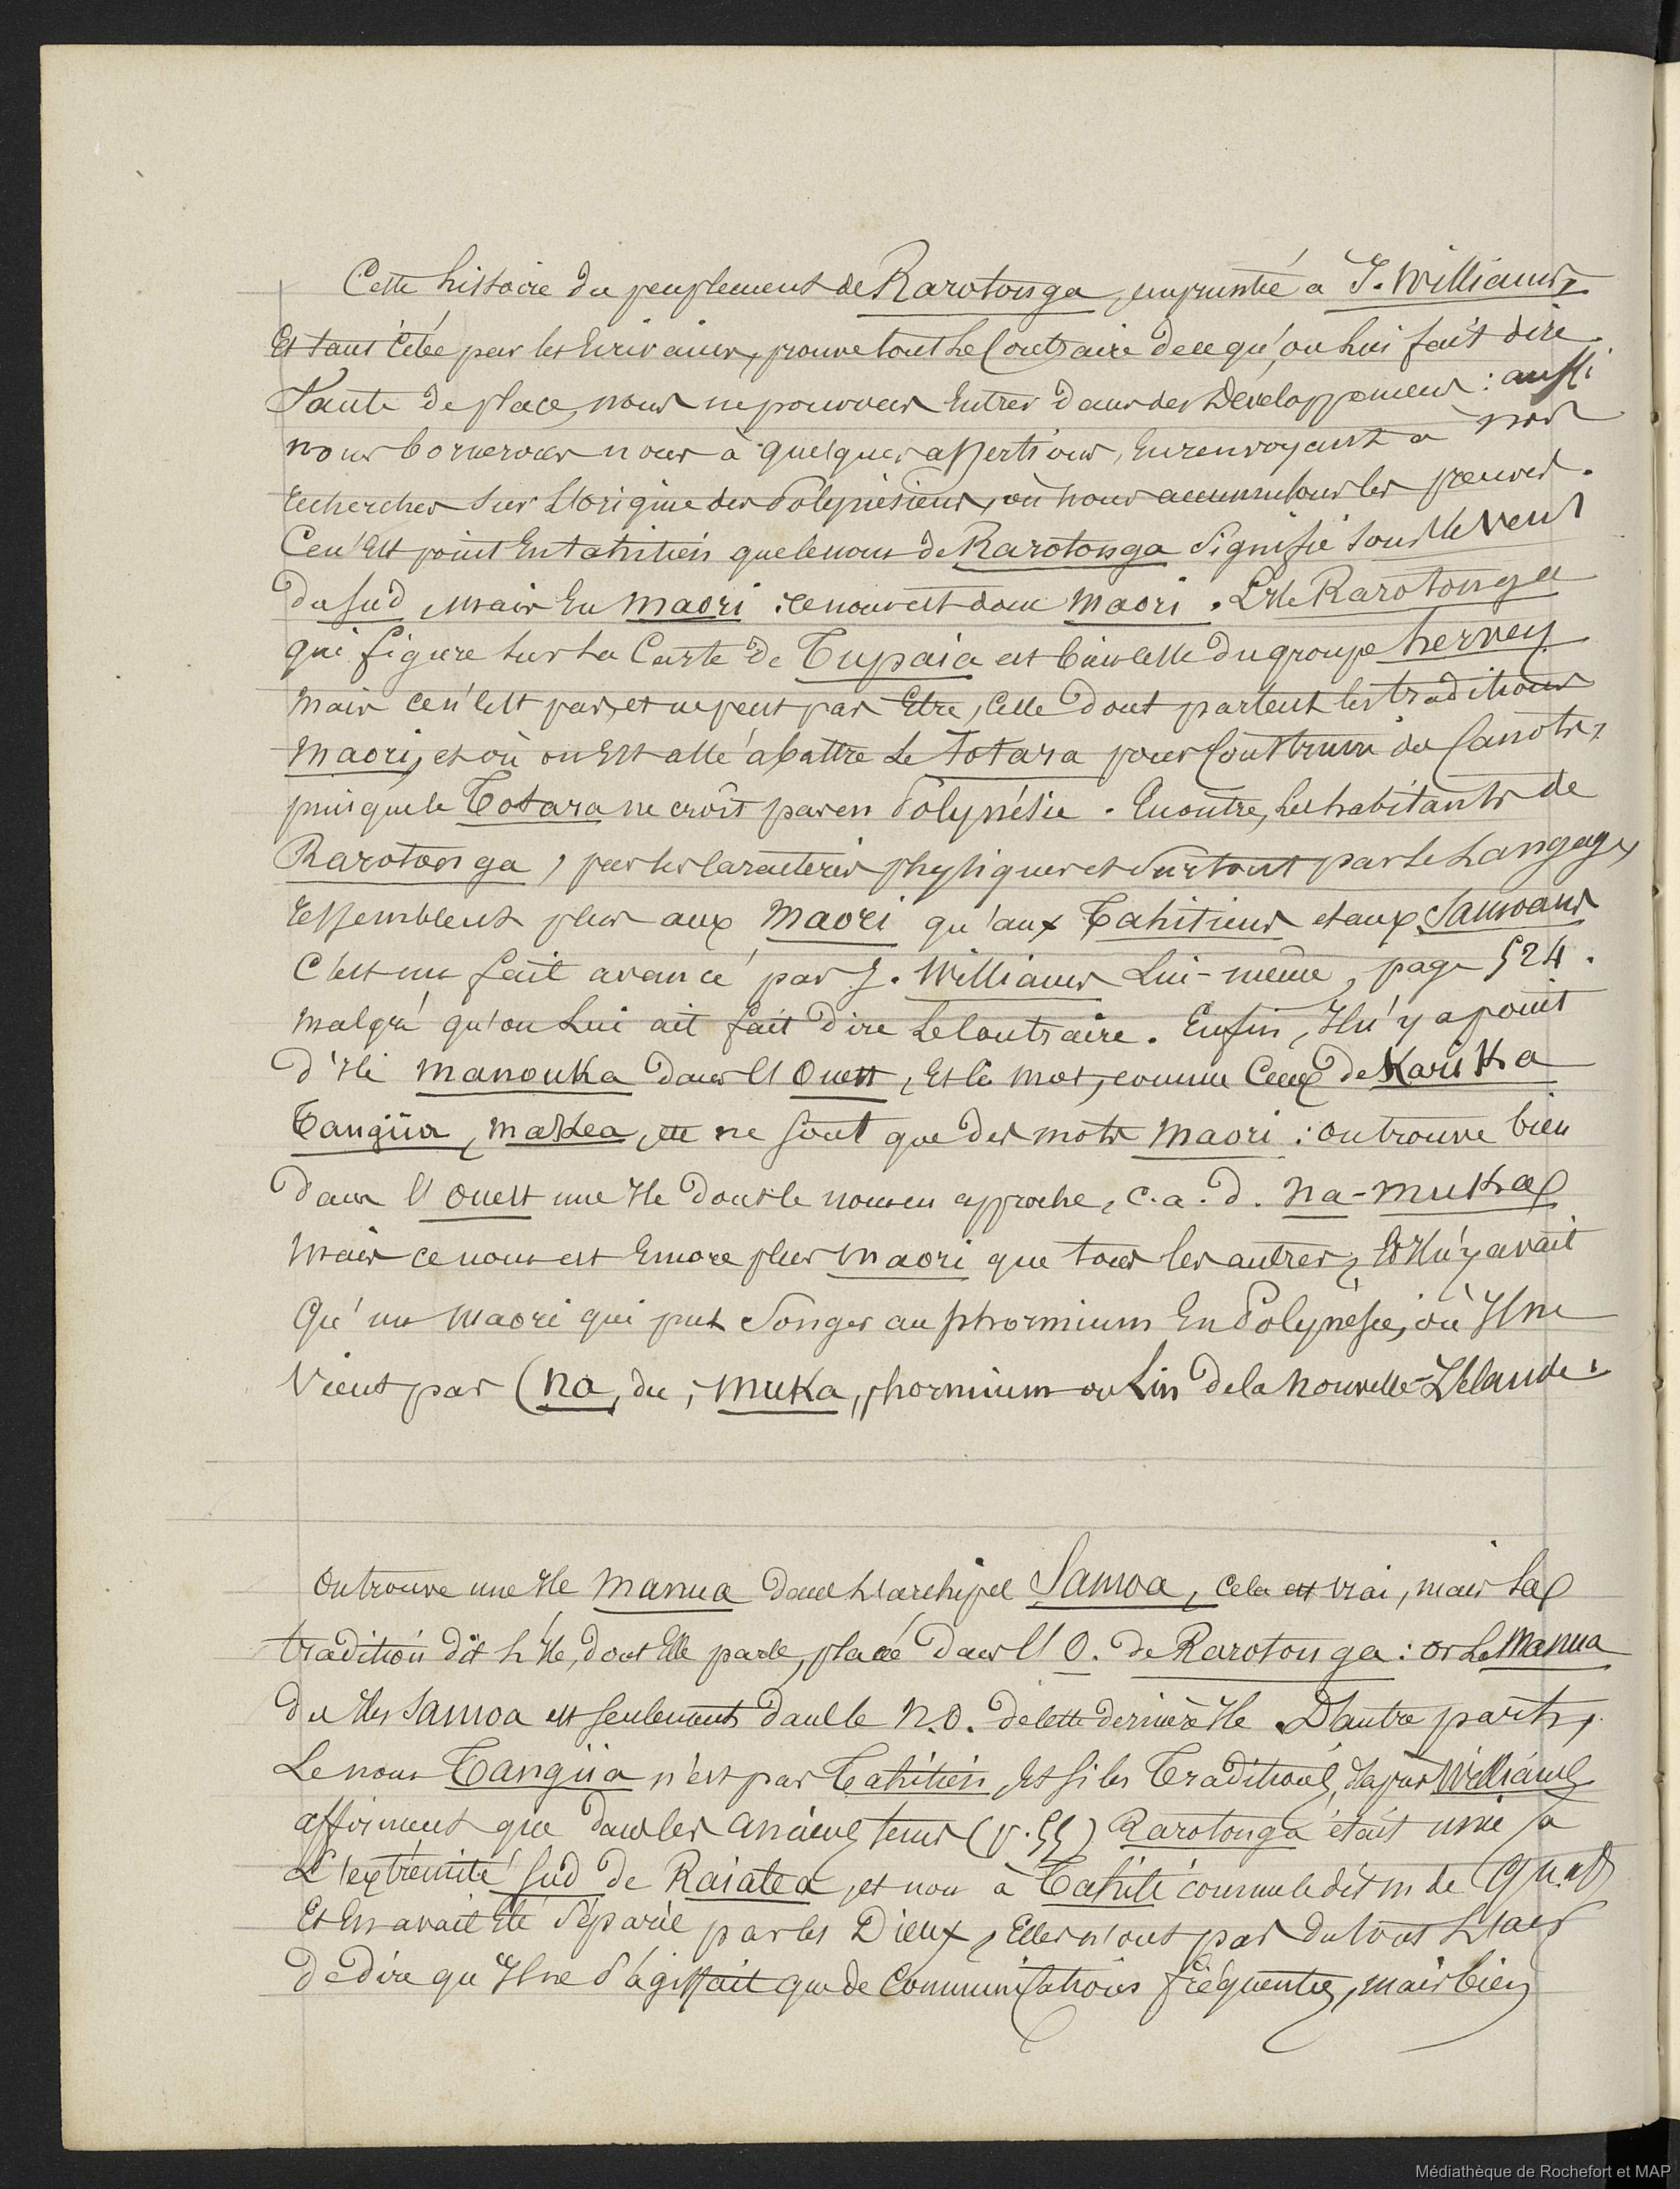 Cette histoire du peuplement de Rarotonga, empruntée a J. Williams,
Et tant citée par les Ecrivains, prouve tout le Contraire de ce qu'on lui fait dire.
Faute de place, nous ne pouvons Entrer dans des Développemens : aussi
nous bornerons nous à quelques assertions, En renvoyant a nos
recherches sur L'origine des Polynésiens, où nous accumulons les preuves.
Ce n'Est point En tahitien que le nom de Rarotonga Signifie sous le Vent
du Sud, mais En Maori : ce nom est donc Maori. L'Ile Rarotonga
qui figure sur La Carte de Tupaia est bien celle du groupe hervey
mais ce n'est pas, et ne peut pas Etre, Celle dont partent les traditions
Maori, et où on Est allé abattre Le Totara pour Construire des Canots,
puisque le Totara ne croît pas en Polynésie. En outre, les habitants de
Rarotonga, par les Caractères physiques et Surtout par le Langage,
ressemblent plus aux Maori qu'aux Tahitiens et aux Samoans
C'est un fait avancé par J. Williams Lui-même, page 524.
malgré qu'on Lui ait fait dire le Contraire. Enfin, Il n'y a point
d'Ile Manouka dans l'Ouest, Et ce mot, comme Ceux de Karika
Tangiia, Makea, etc ne sont que des mots Maori : on trouve bien
dans l'Ouest une Ile dont le nom en approche, c.a.d. Na-muka
mais ce nom est Encore plus Maori que tous les autres, Et Il n'y avait
Qu'un Maori qui put Songer au phormium En Polynésie, où Il ne
Vient pas (na, du, ; muka, phormium ou Lin de la Nouvelle-Zélande.
On trouve une Ile Manua dans L'archipel Samoa, cela est vrai, mais La
tradition dit L'Ile, dont Elle parle, placée dans l'O. de Rarotonga : or Le Manua
des Iles Samoa est seulement dans le N.O. de Cette dernière Ile. D'autre part,
Le nom Tangiia n'est pas Tahitien, Et si les Traditions, d'après Williams
affirment que dans les anciens tems (p. 55) Rarotonga était unie a
L'extrémité Sud de Raiatea, et non à Tahiti comme le dit m de Q
Et En avait Eté séparée par les Dieux, Elles n'ont pas du tout L'air
de dire qu'Il ne s'agissait que de Communications fréquentes, mais bien
Médiathèque de Rochefort et MAP